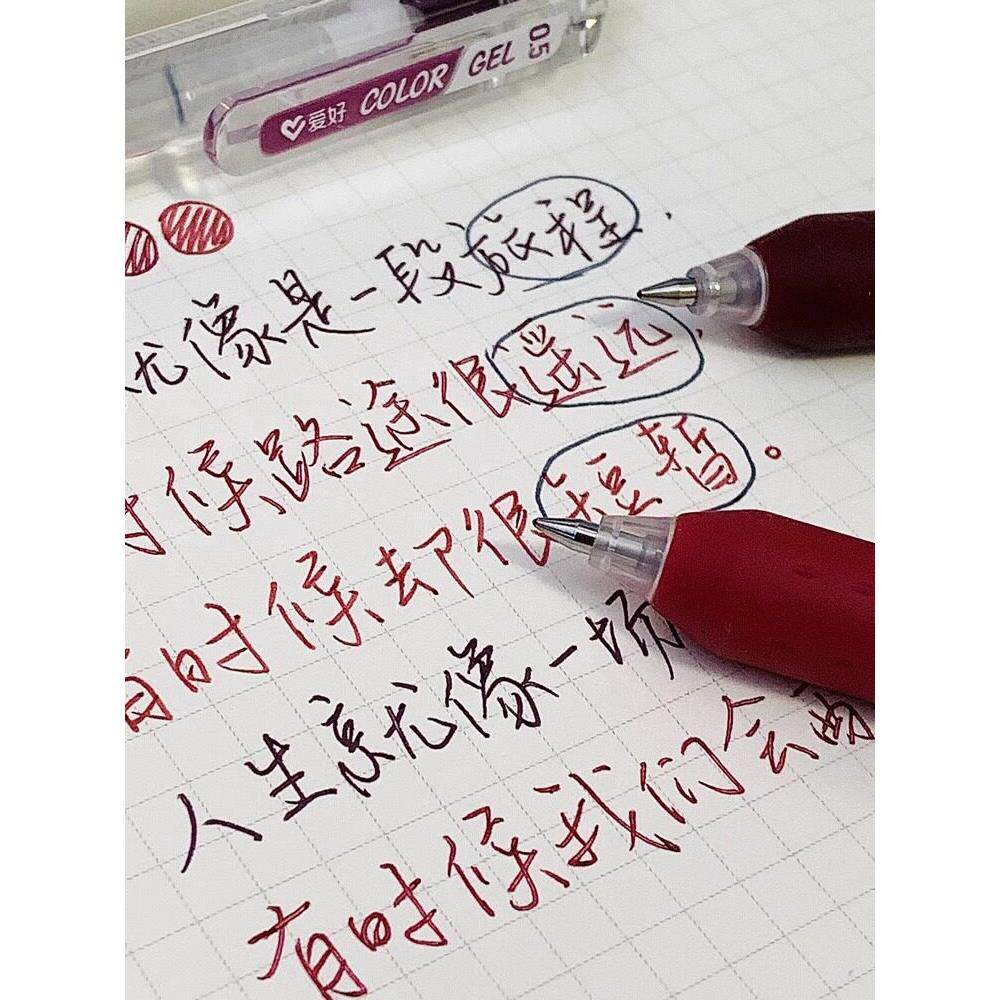 爱好 COLOR GEL 0.5
就像是一段旅程.
时候路途很遥远.
有时候却很短暂。
人生就像一场
有时候我们会